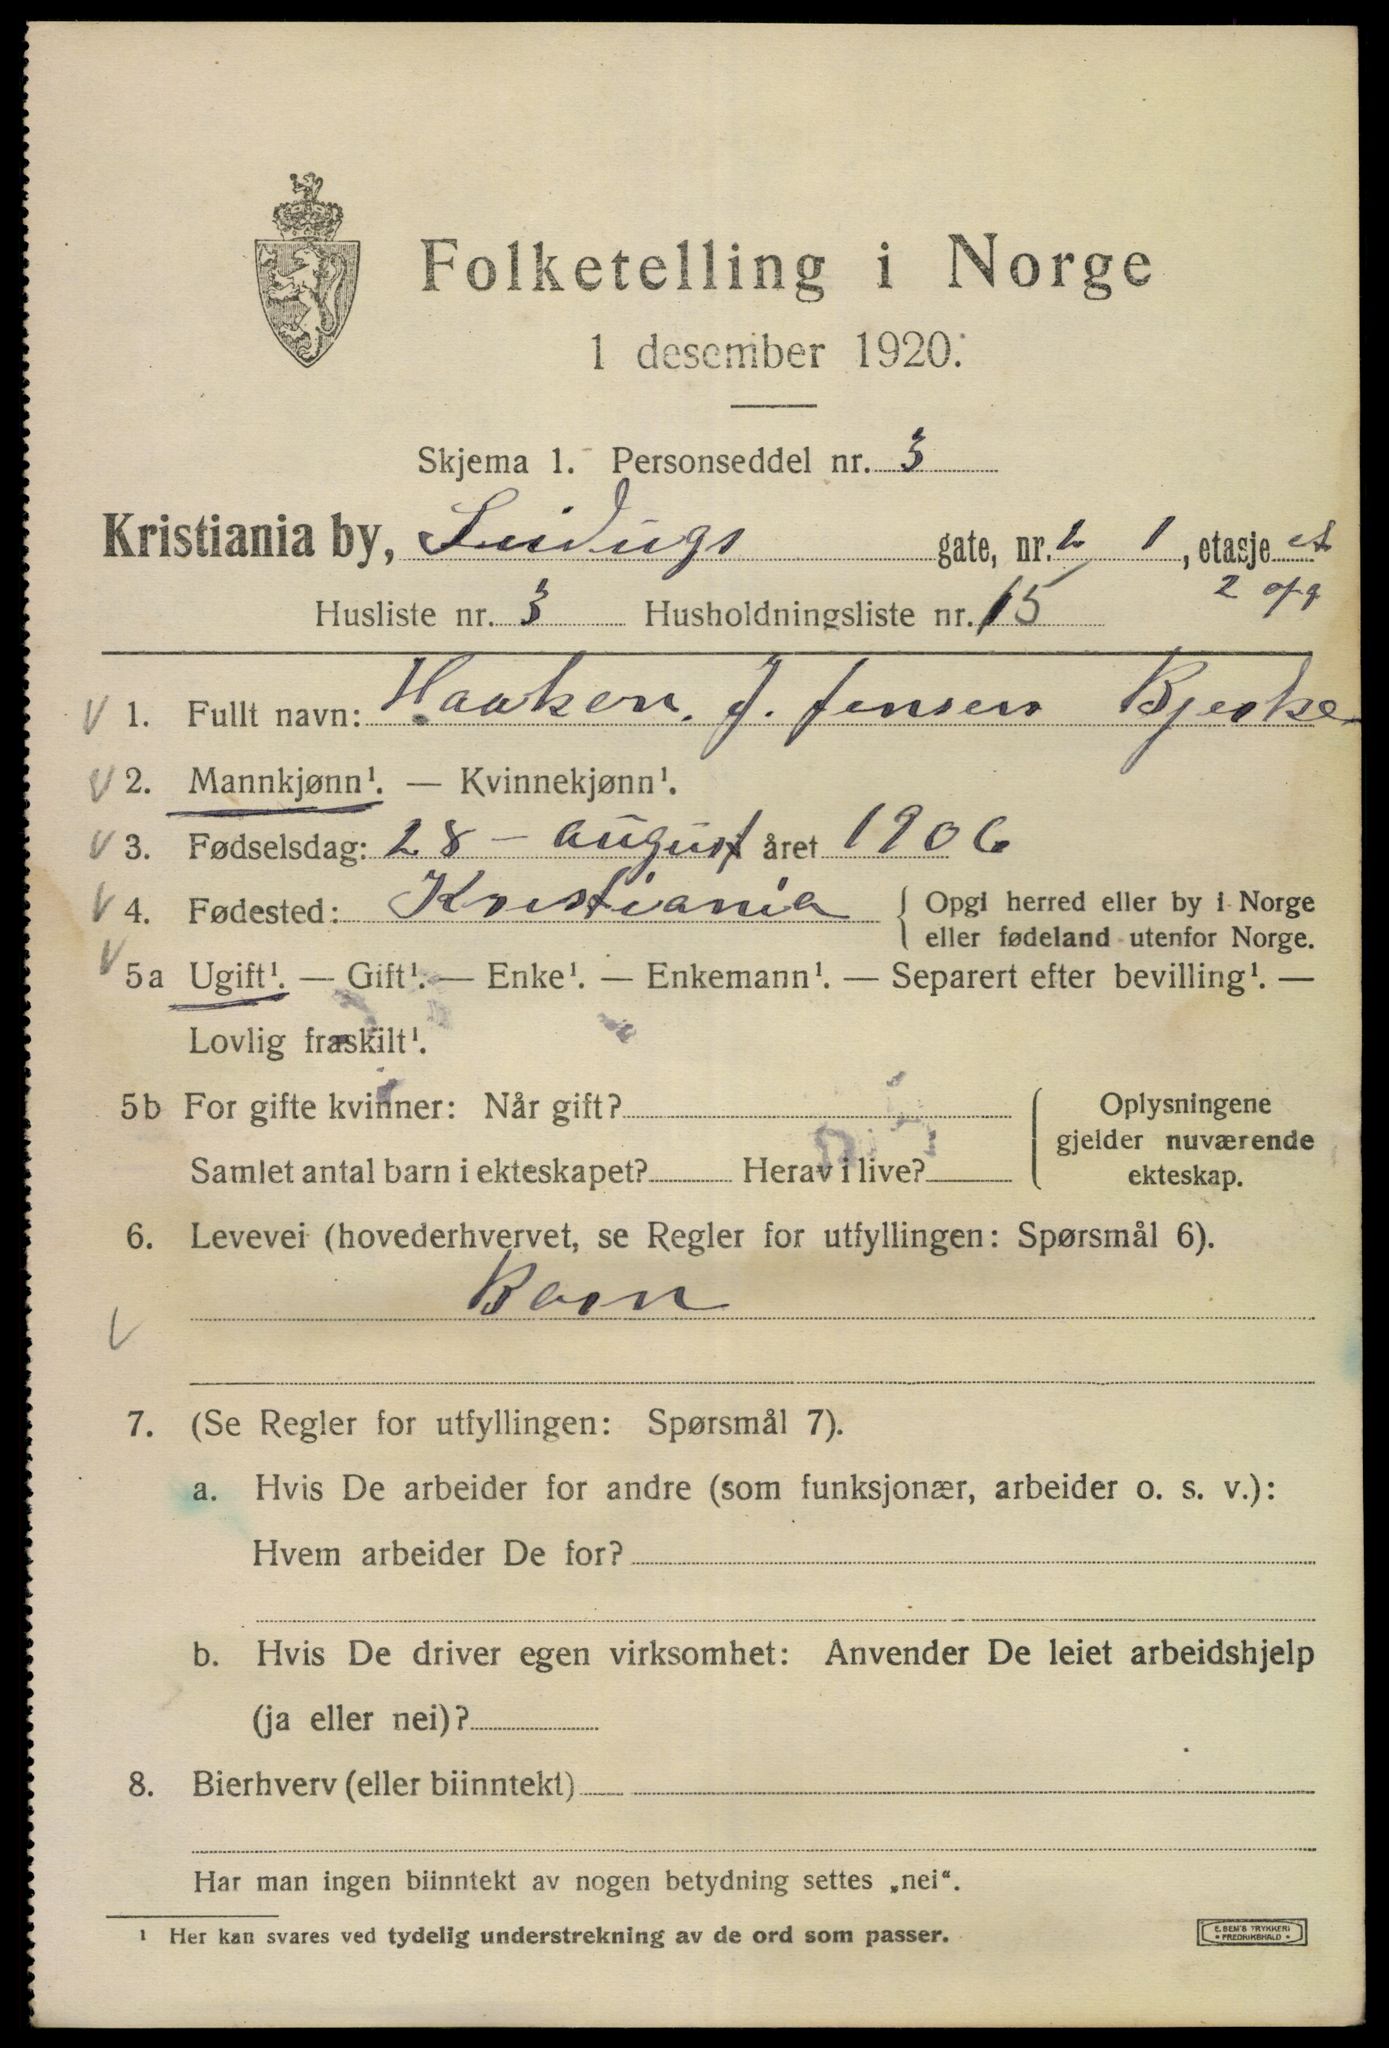 Folketelling i Norge
1 desember 1920.
Skjema 1. Personseddel nr. 3
Kristiania by, gate, nr. 1, etasje
2 opg
Husliste nr. 3 Husholdningsliste nr. 15
1. Fullt navn: Haaken. J. Jensen
2. Mannkjønn¹. — Kvinnekjønn¹.
3. Fødselsdag: 28 – august året 1906
4. Fødested: Kristiania { Opgi herred eller by i Norge
eller fødeland utenfor Norge.
5a Ugift¹. — Gift¹. — Enke¹. — Enkemann¹. — Separert efter bevilling¹. —
Lovlig fraskilt¹.
5b For gifte kvinner: Når gift? { Oplysningene
gjelder nuværende
Samlet antal barn i ekteskapet? Herav i live? ekteskap.
6. Levevei (hovederhvervet, se Regler for utfyllingen: Spørsmål 6).
Barn
7. (Se Regler for utfyllingen: Spørsmål 7).
a. Hvis De arbeider for andre (som funksjonær, arbeider o. s. v.):
Hvem arbeider De for?
b. Hvis De driver egen virksomhet: Anvender De leiet arbeidshjelp
(ja eller nei)?
8. Bierhverv (eller biinntekt)
Har man ingen biinntekt av nogen betydning settes „nei“.
¹ Her kan svares ved tydelig understrekning av de ord som passer.
E. SEM'S TRYKKERI
• FREDRIKSHALD •